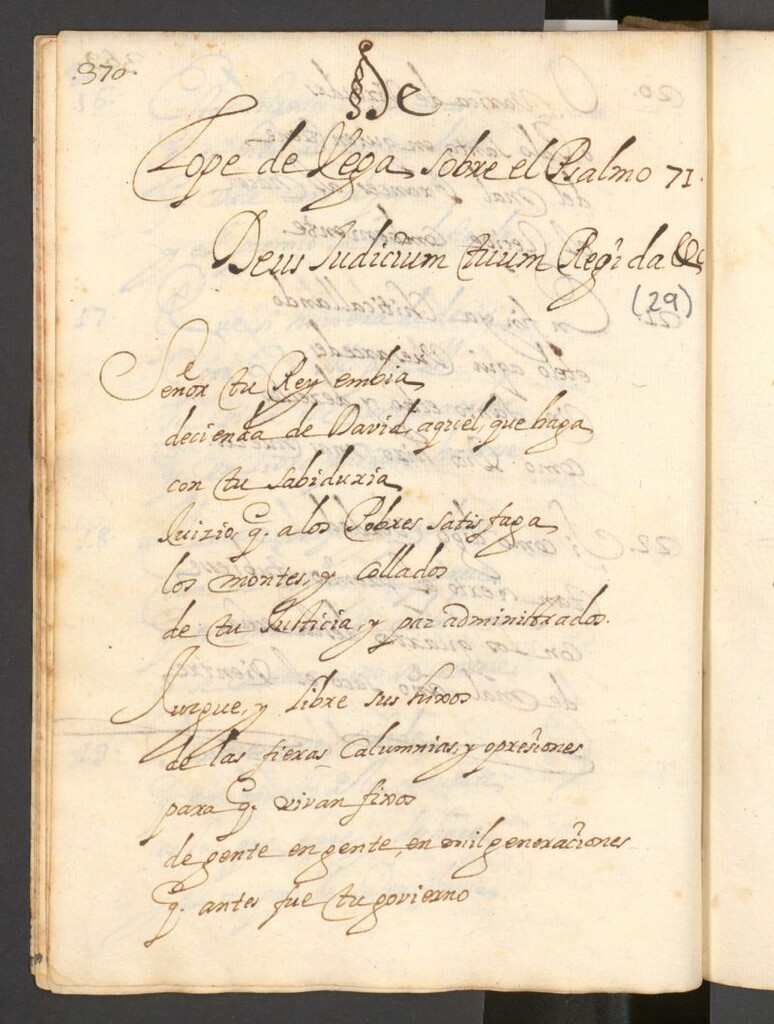 .370.
De
Lope de Vega sobre el Psalmo 71.
Deus Iudicium tuum Regi da &c
(29)
Señor tu Rey embia
decienda de David, aquel, que haga
con tu sabiduria
Juizio, q. a los Pobres satisfaga
los montes, y Collados
de tu Justicia, y paz administrados.
Jurgue, y libre sus hixos
de las fieras Calumnias, y opresiones
para q. vivan fixos
de gente en gente, en mil generaciones
q. antes fue tu govierno